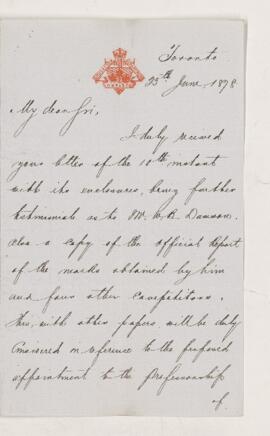 Toronto
25th June, 1878
My dear Sir,
I duly received
your letter of the 10th instant
with its enclosures, being further
testimonials as to Mr. W. R. Dawson.
Also a copy of the official Report
of the marks obtained by him
and four other Competitors.
This, with other papers, will be duly
Considered in reference to the proposed
appointment to the Professorship
of.